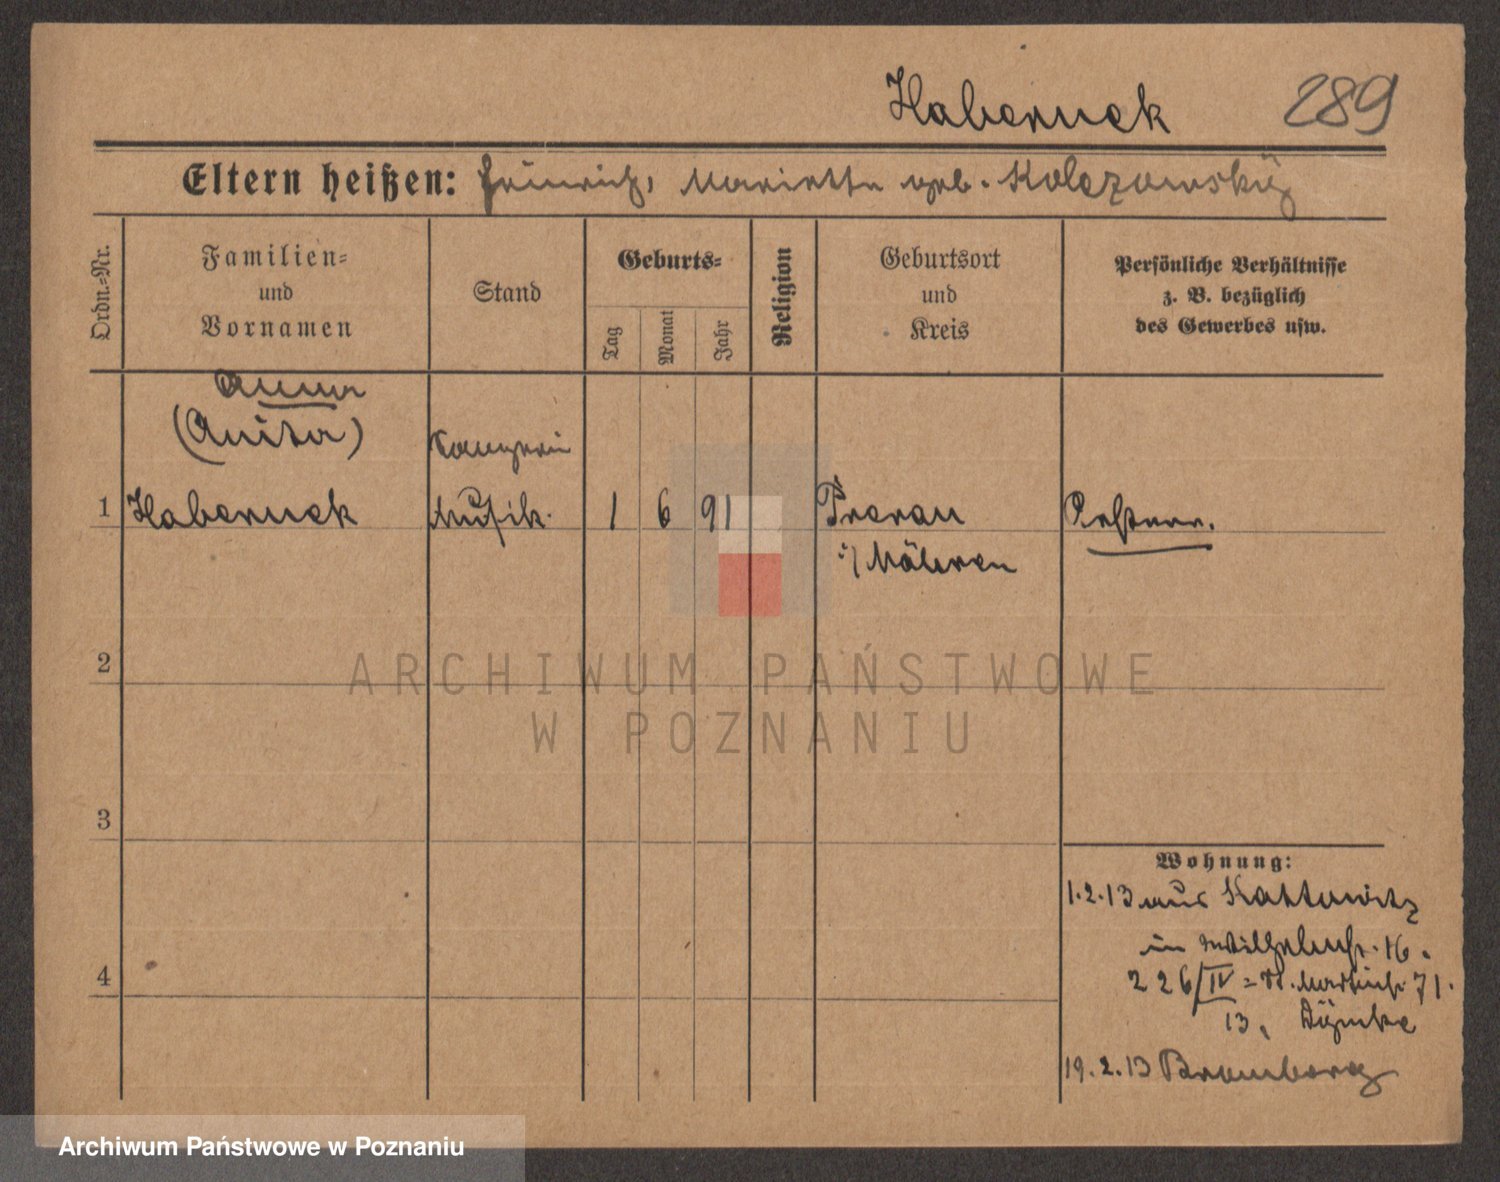 Habernek 289
Eltern heißen: Heinrich, Marietta geb. Kolezowsky
Ordn.-Nr.
Familien-
und
Vornamen
Stand
Geburts-
Tag
Monat
Jahr
Religion
Geburtsort
und
Kreis
Persönliche Verhältnisse
z. B. bezüglich
des Gewerbes usw.
Anna
(Anita)
1 Habernek Musik. 1 6 91 Prerau
i/ Mähren
2
ARCHIWUM PAŃSTWOWE
W POZNANIU
3
4
Wohnung:
1.2.13 aus Kattowitz
in Wilhelmstr. 16.
226/IV = St. Martinstr. 71.
13.
19.2.13 Bromberg
Archiwum Państwowe w Poznaniu